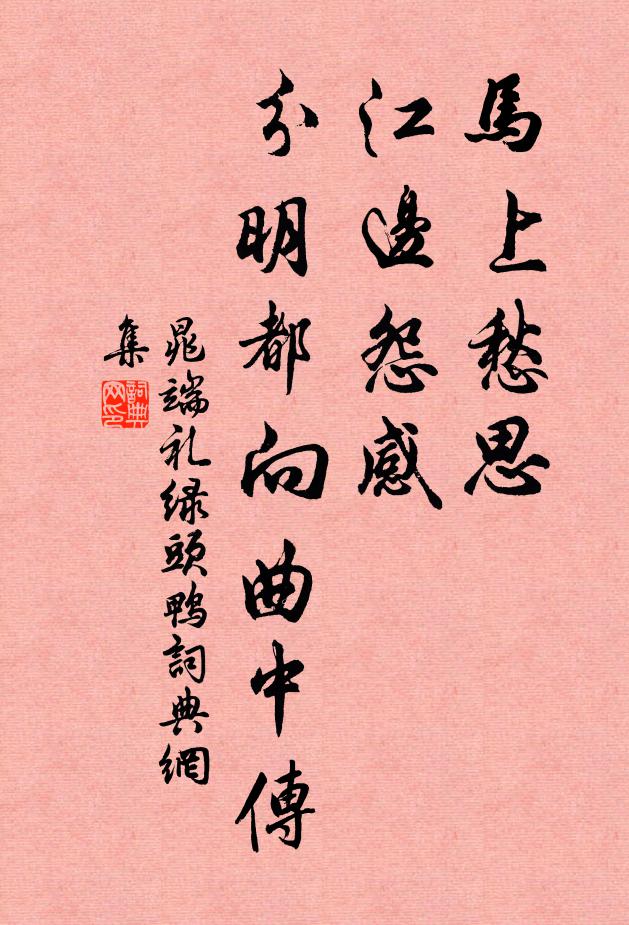 馬上愁思
江邊怨感
分明都向曲中傳
晁端礼绿頭鴨詞典網
集
詞典
网印